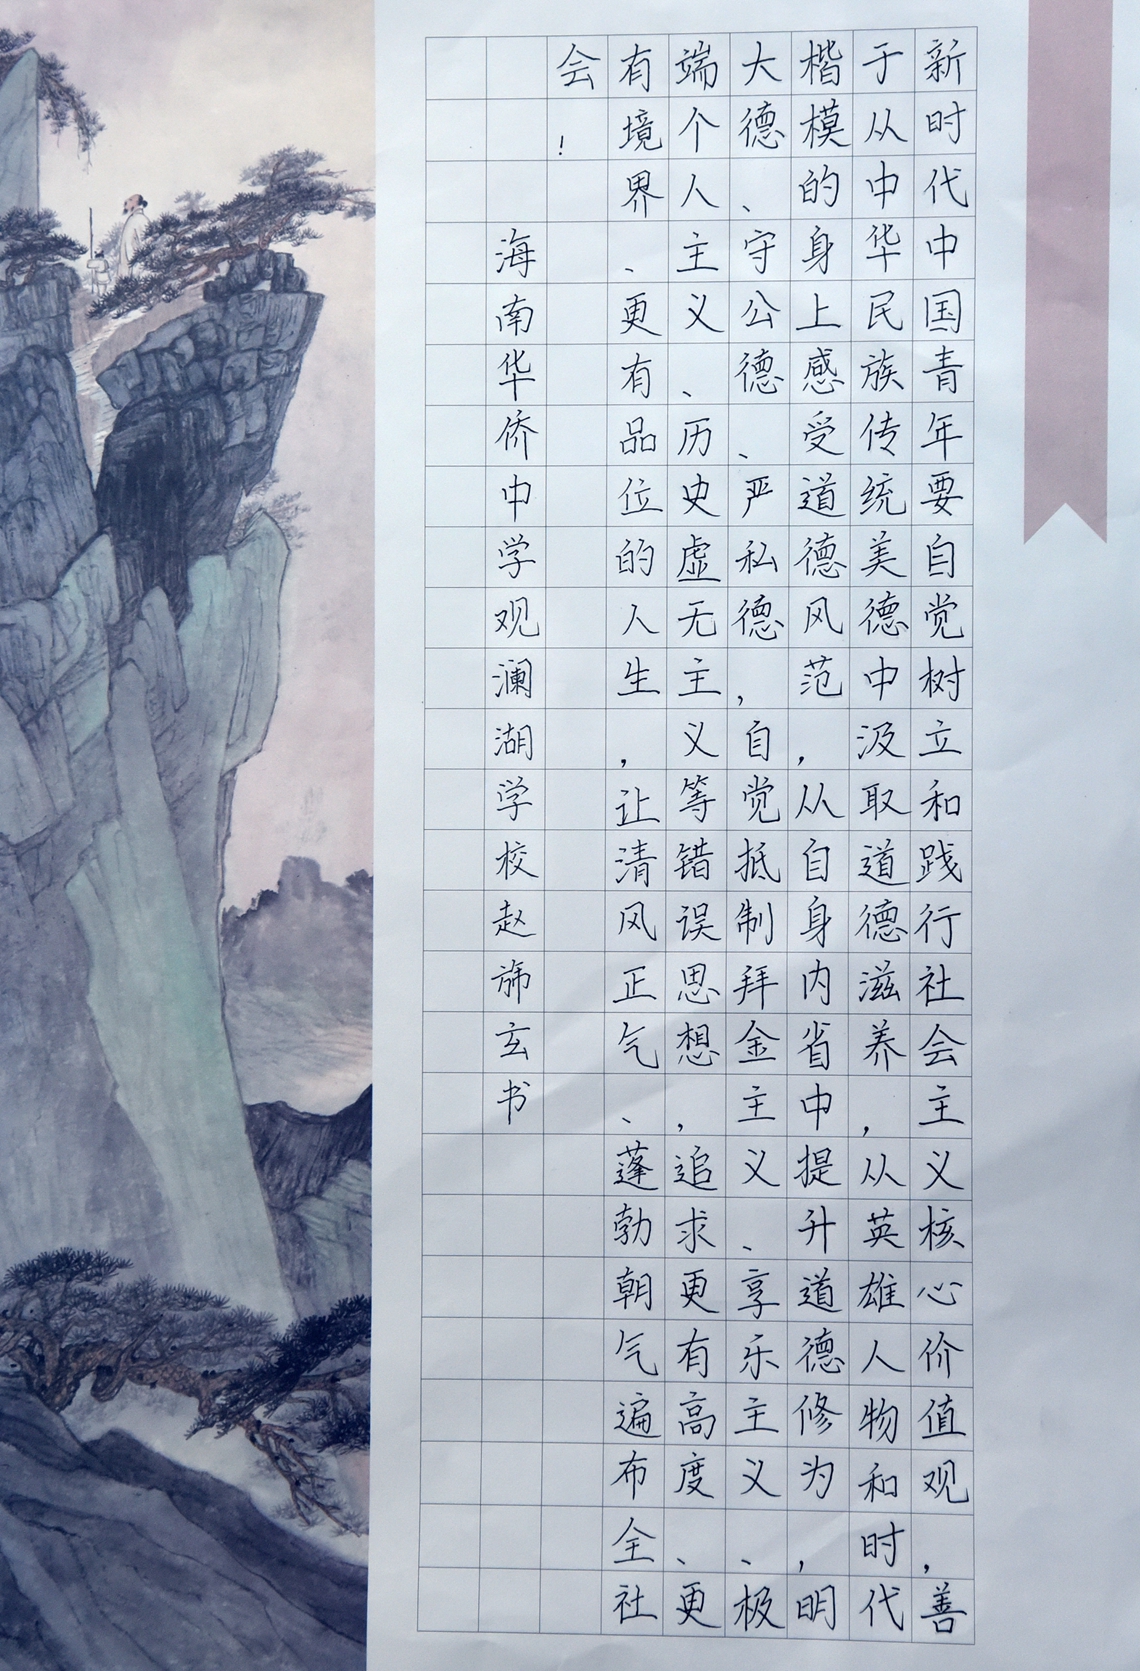 新时代中国青年要自觉树立和践行社会主义核心价值观，善
于从中华民族传统美德中汲取道德滋养，从英雄人物和时代
楷模的身上感受道德风范，从自身内省中提升道德修为，明
大德、守公德、严私德，自觉抵制拜金主义、享乐主义、极
端个人主义、历史虚无主义等错误思想，追求更有高度、更
有境界、更有品位的人生，让清风正气、蓬勃朝气遍布全社
会！
海南华侨中学观澜湖学校赵斾玄书